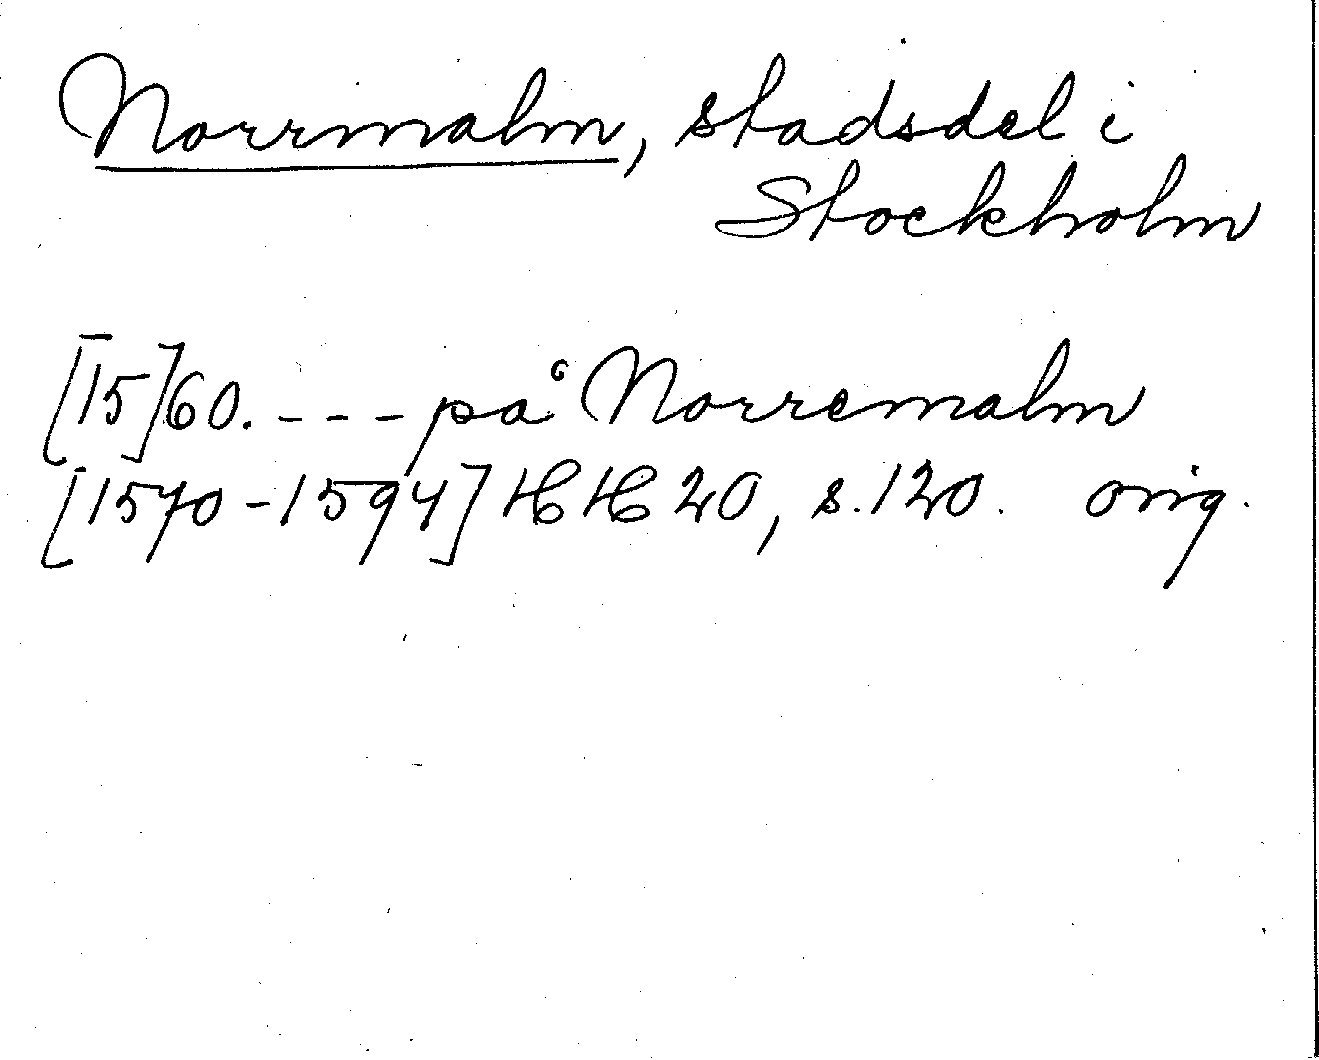 Norrmalm, stadsdel i
Stockholm
[15]60. - - - på Norremalm
[1570-1594] HH 20, s. 120. orig.